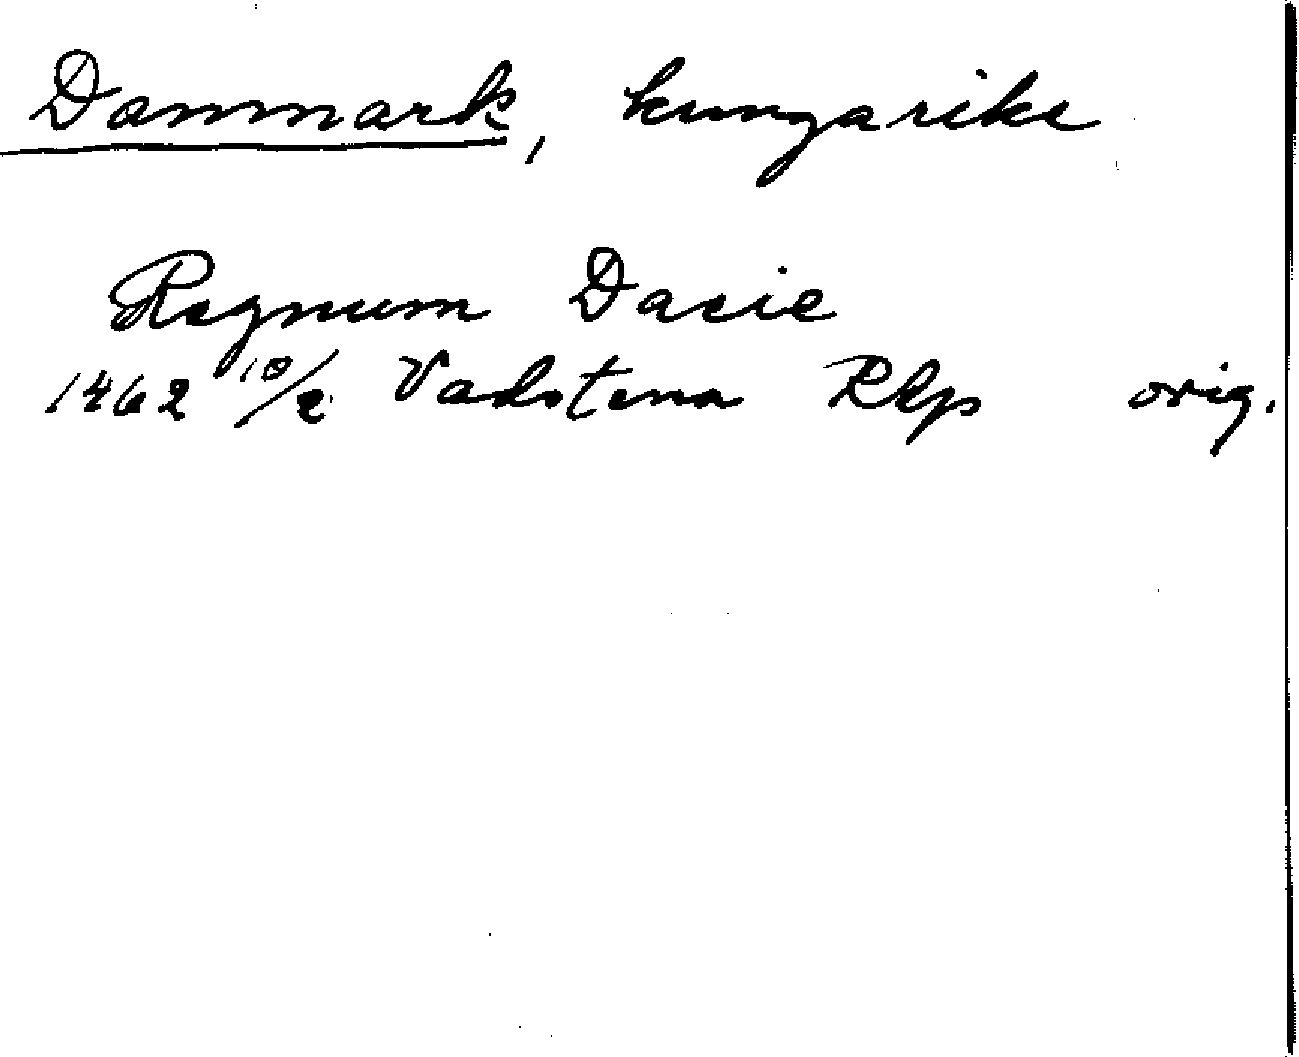 Danmark, kungarike
Regnum Dacie
1462 10/2 Vadstena RAp orig.